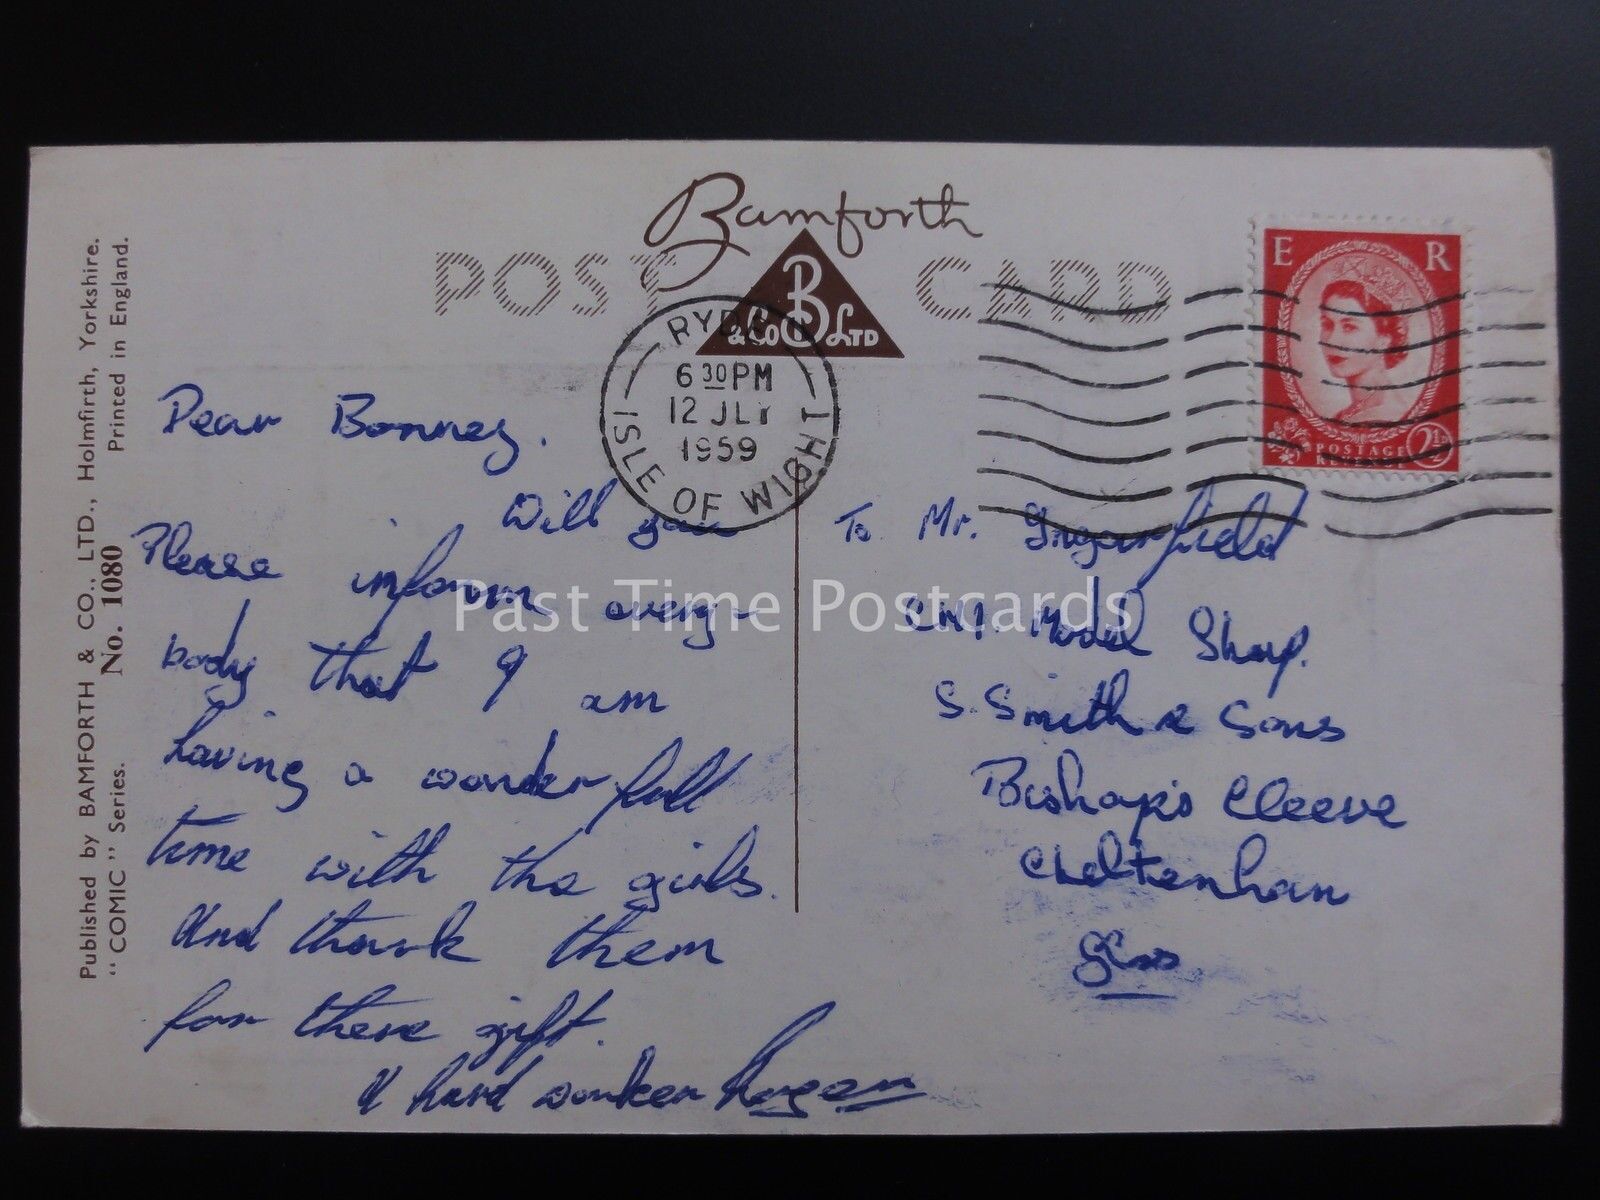 Bamforth
POST CARD
B
& CO LTD
RYDE
6 30 PM
12 JLY
1959
ISLE OF WIGHT
E R
POSTAGE
REVENUE
2½
Published by BAMFORTH & CO., LTD., Holmfirth, Yorkshire.
"COMIC" Series. No. 1080 Printed in England.
Dear Bonney.
Will you
Please inform every-
body that I am
having a wonderfull
time with the girls.
And thank them
for there gift.
A hard worker
To Mr. Ingarfield
Model Shop.
S. Smith & Sons
Bishop's Cleeve
Cheltenham
Glos
Past Time Postcards